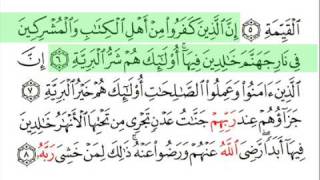 ٱلۡقَيِّمَةِ ٥ إِنَّ ٱلَّذِينَ كَفَرُواْ مِنۡ أَهۡلِ ٱلۡكِتَٰبِ وَٱلۡمُشۡرِكِينَ
فِي نَارِ جَهَنَّمَ خَٰلِدِينَ فِيهَآۚ أُوْلَٰٓئِكَ هُمۡ شَرُّ ٱلۡبَرِيَّةِ ٦ إِنَّ
ٱلَّذِينَ ءَامَنُواْ وَعَمِلُواْ ٱلصَّٰلِحَٰتِ أُوْلَٰٓئِكَ هُمۡ خَيۡرُ ٱلۡبَرِيَّةِ ٧
جَزَآؤُهُمۡ عِندَ رَبِّهِمۡ جَنَّٰتُ عَدۡنٖ تَجۡرِي مِن تَحۡتِهَا ٱلۡأَنۡهَٰرُ خَٰلِدِينَ
فِيهَآ أَبَدٗاۖ رَّضِيَ ٱللَّهُ عَنۡهُمۡ وَرَضُواْ عَنۡهُۚ ذَٰلِكَ لِمَنۡ خَشِيَ رَبَّهُۥ ٨